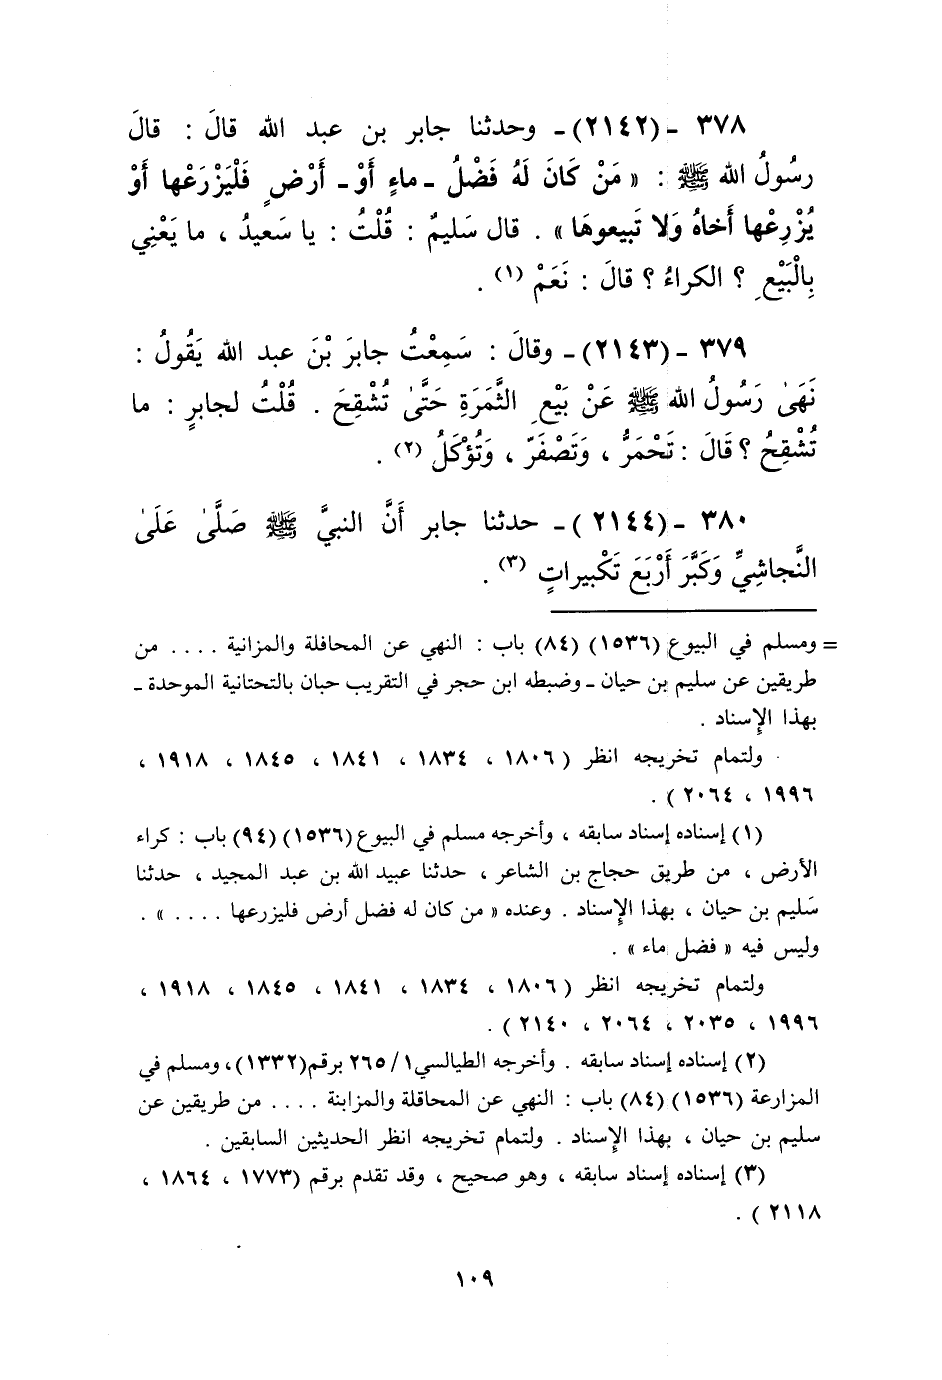 ٣٧٨ ـ (٢١٤٢)ـ وحدثنا جابر بن عبد الله قالَ : قالَ
رسُولُ الله ﷺ : « مَنْ كَانَ لَهُ فَضْلُ ـ ماءٍ أَوْ ـ أَرْضٍ فَلْيَزْرَعْها أَوْ
يُزْرِعْها أَخاهُ وَلا تَبيعوهَا » . قال سَليمٌ : قُلْتُ : يا سَعيدُ ، ما يَعْنِي
بِالْبَيْعِ ؟ الكراءُ ؟ قالَ : نَعَمْ (١) .
٣٧٩ ـ (٢١٤٣)ـ وقالَ : سَمِعْتُ جابرَ بْنَ عبد الله يَقُولُ :
نَهَىٰ رَسُولُ الله ﷺ عَنْ بَيْعِ الثَّمَرَةِ حَتَّىٰ تُشْقِحَ . قُلْتُ لجابرٍ : ما
تُشْقِحُ ؟ قَالَ : تَحْمَرُّ ، وَتَصْفَرّ ، وَتُؤْكَلُ (٢) .
٣٨٠ ـ (٢١٤٤)ـ حدثنا جابر أَنَّ النبيَّ ﷺ صَلَّىٰ عَلَىٰ
النَّجاشِيِّ وَكَبَّرَ أَرْبَعَ تَكْبيراتٍ (٣) .
= ومسلم في البيوع (١٥٣٦) (٨٤) باب : النهي عن المحافلة والمزانية .... من
طريقين عن سليم بن حيان ـ وضبطه ابن حجر في التقريب حبان بالتحتانية الموحدة ـ
بهذا الإِسناد .
ولتمام تخريجه انظر (١٨٠٦ ، ١٨٣٤ ، ١٨٤١ ، ١٨٤٥ ، ١٩١٨ ،
١٩٩٦ ، ٢٠٦٤ ) .
(١) إسناده إسناد سابقه ، وأخرجه مسلم في البيوع (١٥٣٦) (٩٤) باب : كراء
الأرض ، من طريق حجاج بن الشاعر ، حدثنا عبيد الله بن عبد المجيد ، حدثنا
سَليم بن حيان ، بهذا الإِسناد . وعنده « من كان له فضل أرض فليزرعها .... » .
وليس فيه « فضل ماء » .
ولتمام تخريجه انظر (١٨٠٦ ، ١٨٣٤ ، ١٨٤١ ، ١٨٤٥ ، ١٩١٨ ،
١٩٩٦ ، ٢٠٣٥ ، ٢٠٦٤ ، ٢١٤٠ ) .
(٢) إسناده إسناد سابقه . وأخرجه الطيالسي ١/ ٢٦٥ برقم (١٣٣٢)، ومسلم في
المزارعة (١٥٣٦) (٨٤) باب : النهي عن المحاقلة والمزابنة .... من طريقين عن
سليم بن حيان ، بهذا الإِسناد . ولتمام تخريجه انظر الحديثين السابقين .
(٣) إسناده إسناد سابقه ، وهو صحيح ، وقد تقدم برقم (١٧٧٣ ، ١٨٦٤ ،
٢١١٨ ) .
١٠٩